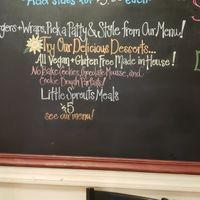 Add sides for $3.00 each
rgers + Wraps, Pick a Patty & Style from Our Menu!
Try Our Delicious Desserts...
All Vegan + Gluten Free Made in House!
No Bake Cookies, Chocolate Mousse, and
Cookie Dough Parfaits!
Little Sprouts Meals
$5
see our menu!